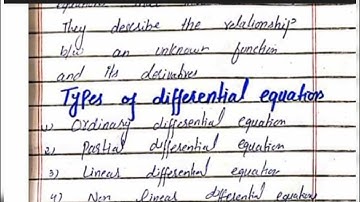 They describe the relationship
b/w an unknown function
and its derivatives
Types of differential equations
1) Ordinary differential equation
2) Partial differential equation
3) Linear differential equation
4) Non linear differential equations